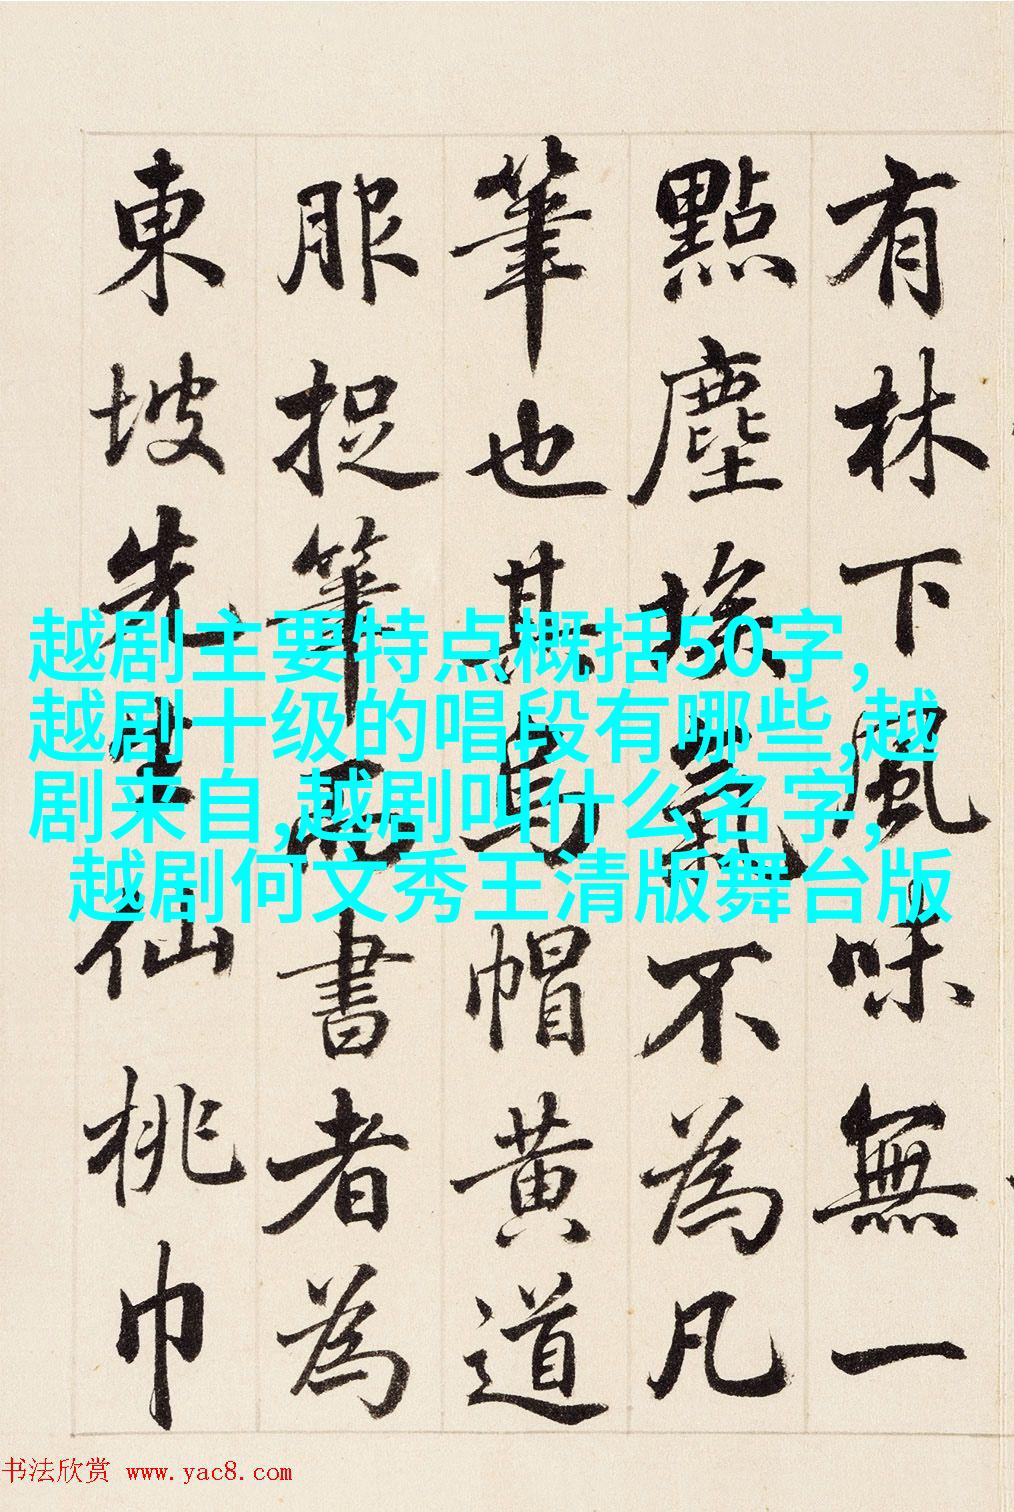 有林下風味無一
點塵埃氣不為凡
筆也其烏帽黃道
服捉筆而書者為
東坡先生仙桃巾
越剧主要特点概括50字,
越剧十级的唱段有哪些,越
剧来自,越剧叫什么名字,
越剧何文秀王清版舞台版
书法欣赏 www.yac8.com